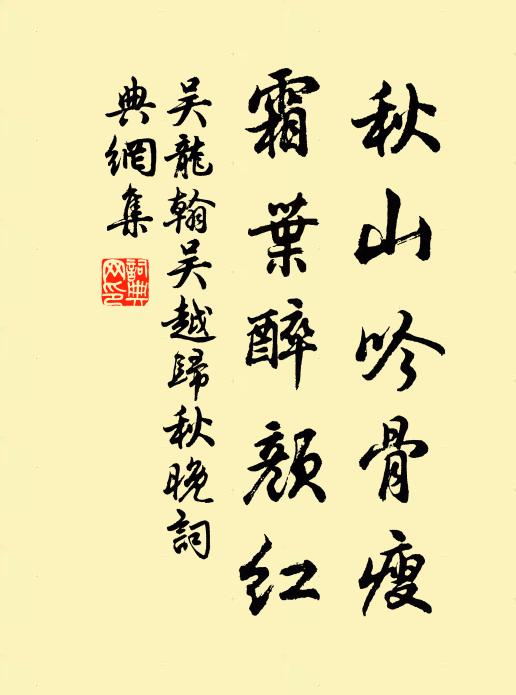 秋山吟骨瘦
霜葉醉顏紅
吳龍翰吳越歸秋晚詞
典網集
詞典網印